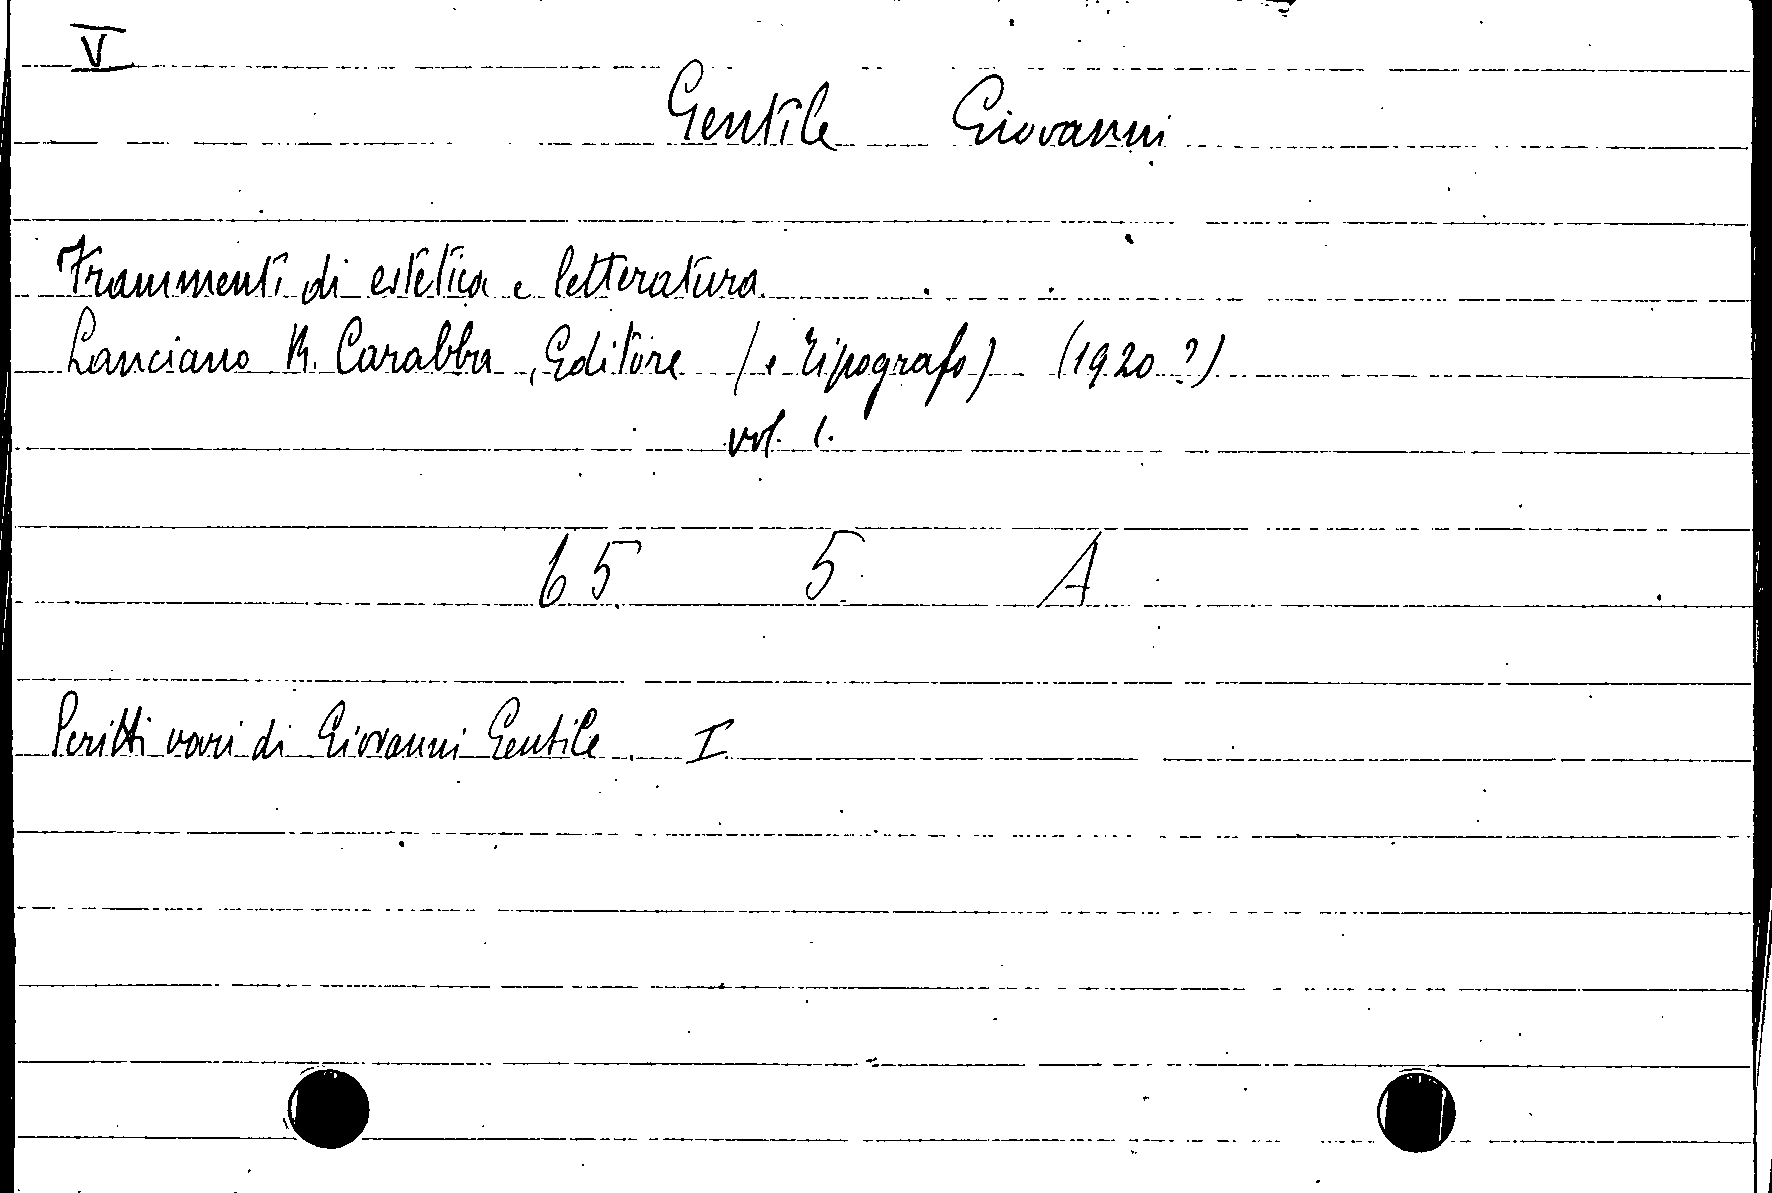 V
Gentile Giovanni
Frammenti di estetica e letteratura
Lanciano R. Carabba, Editore (e Tipografo) (1920?)
vol. 1.
65 5 A
Scritti vari di Giovanni Gentile. I